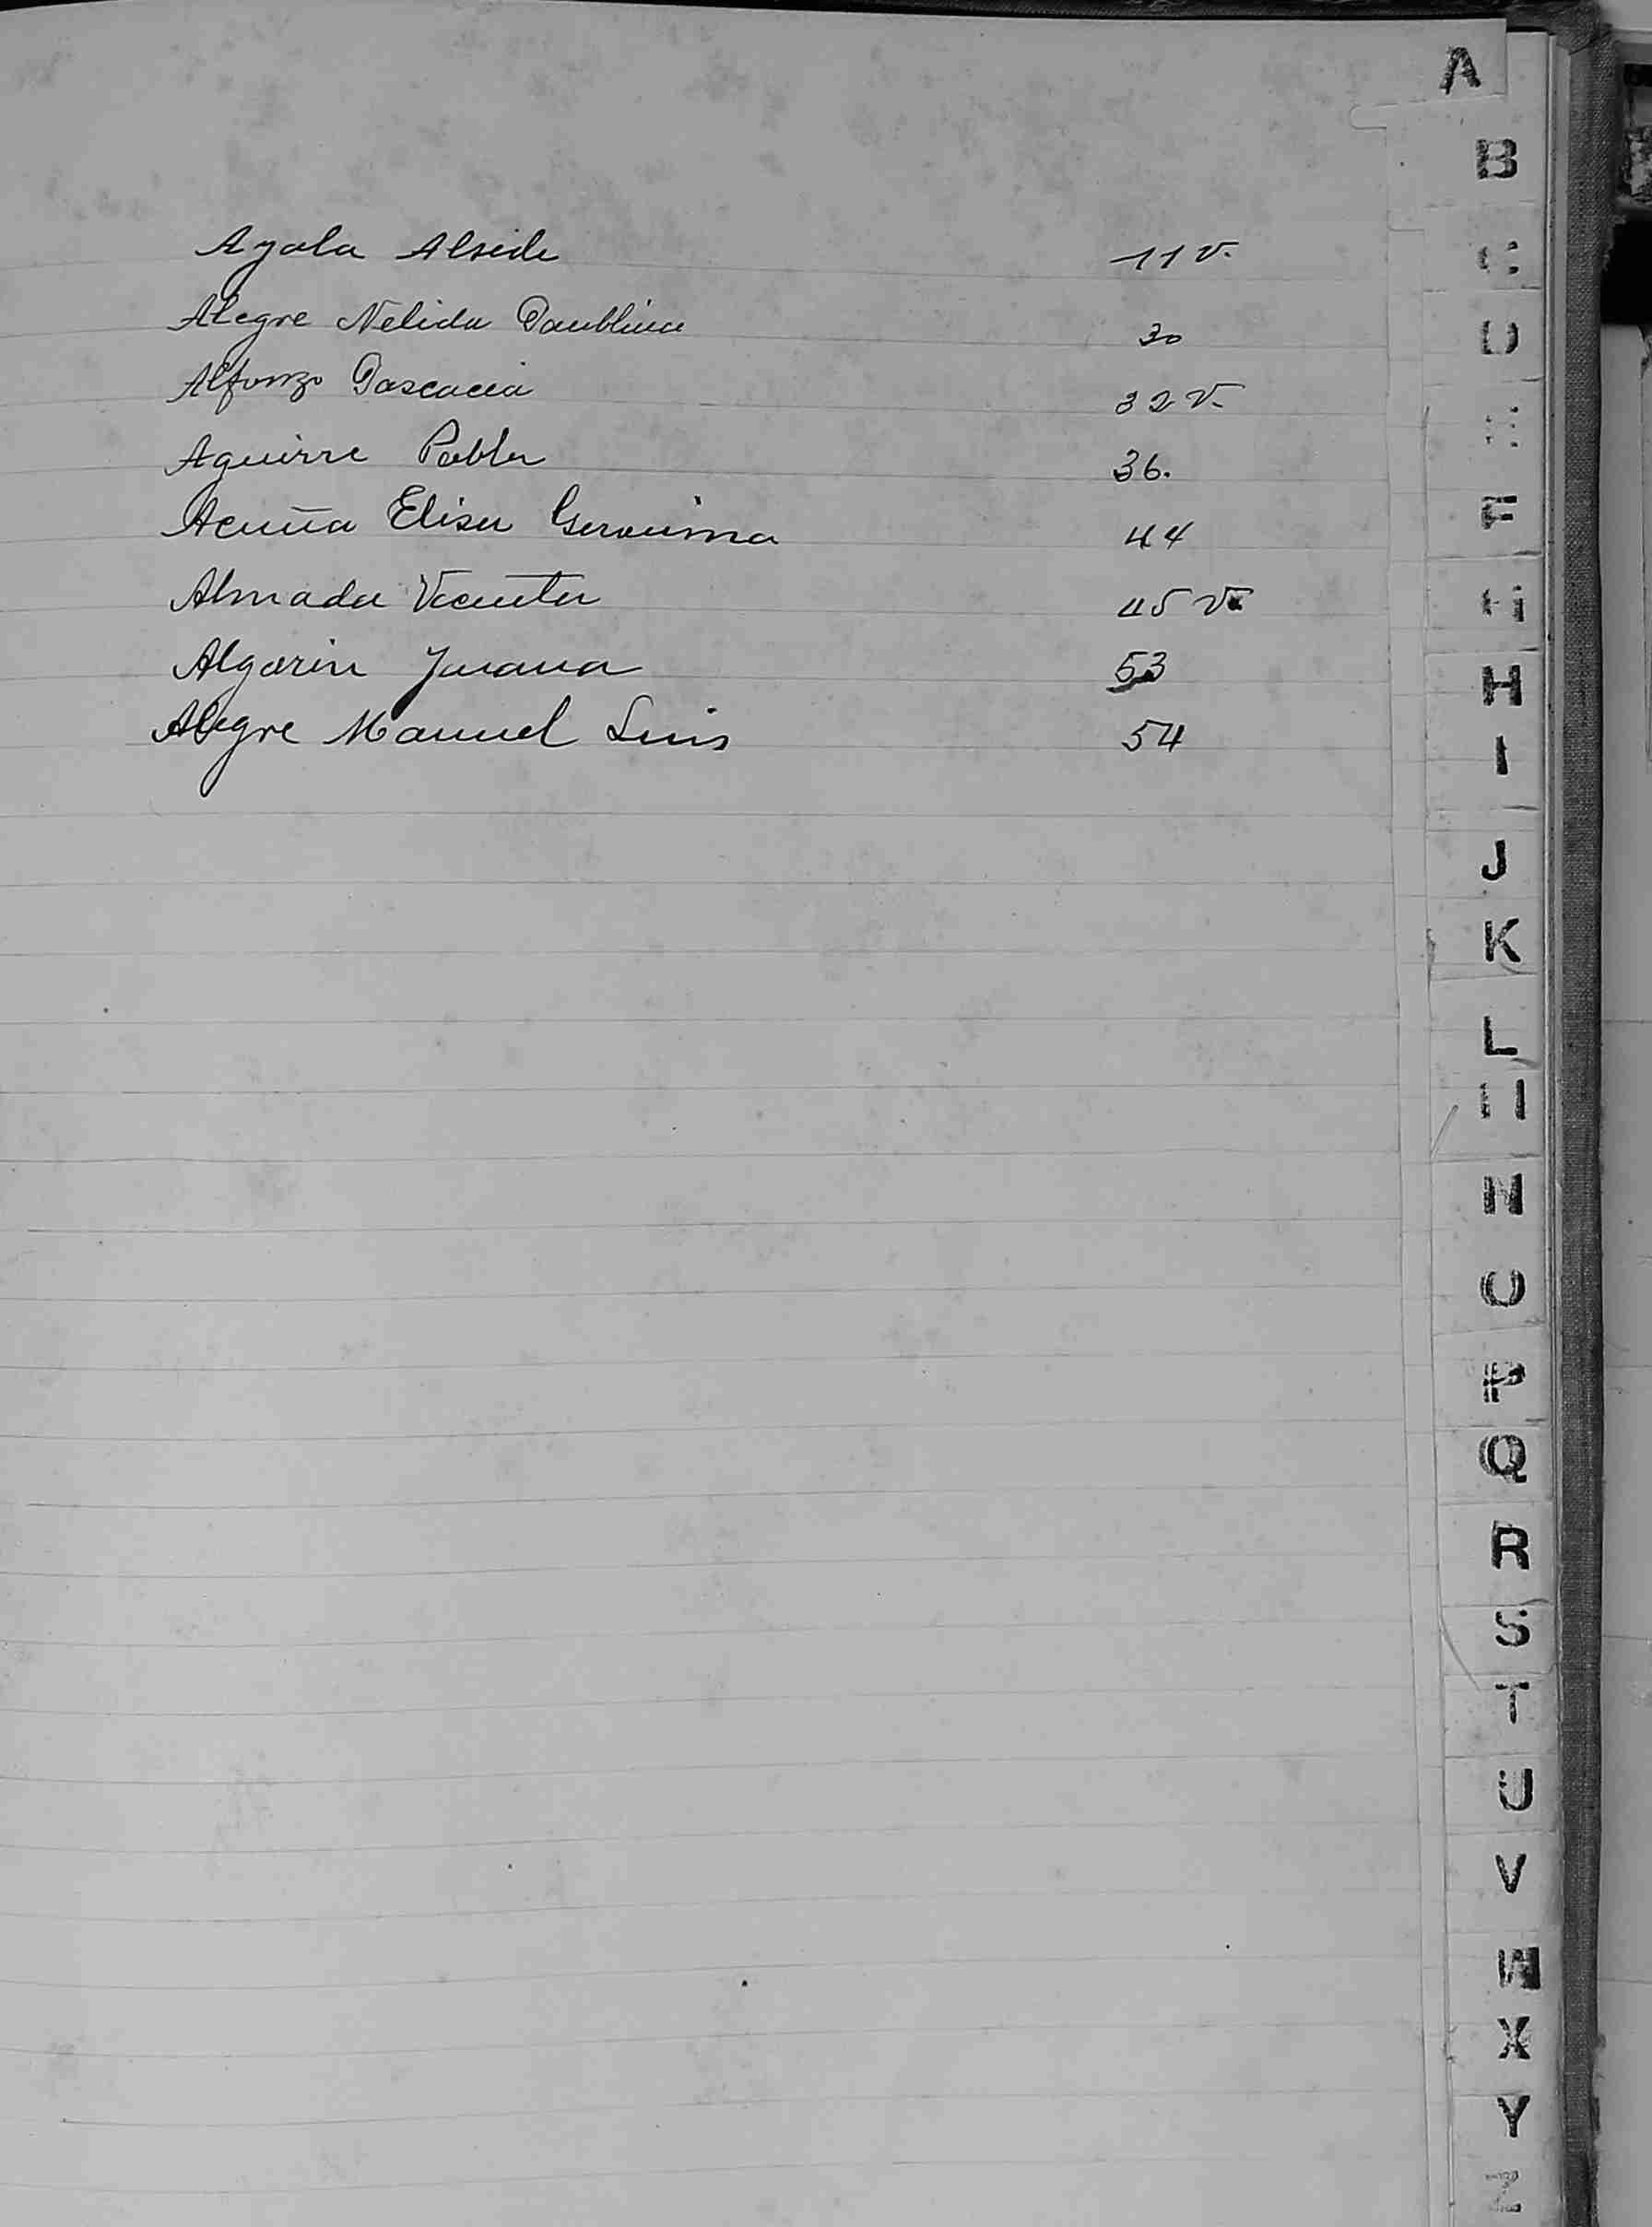 A
B
C
D
F
G
H
I
J
K
L
M
N
O
P
Q
R
S
T
U
V
W
X
Y
Z
Ayala Alside 11 v.
Alegre Nelida Paublina 30
Alfonzo Pascacia 32 v.
Aguirre Pabla 36.
Acuña Elisa Geronima 44
Almada Vicenta 45 v.
Algarin Juana 53
Alegre Manuel Luis 54